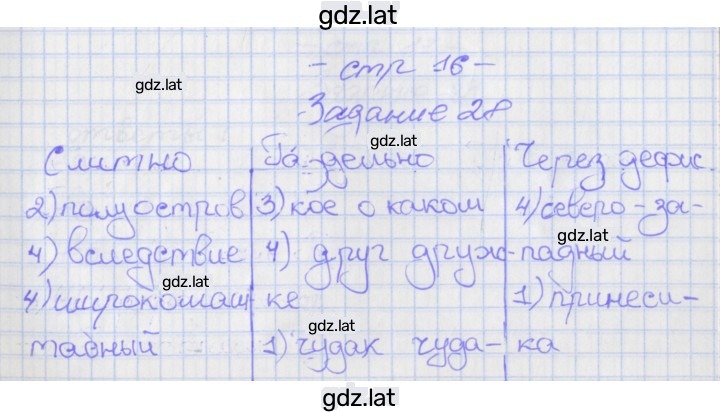 gdz.lat
gdz.lat
- стр 16 -
Задание 28
gdz.lat
Слитно Раздельно Через дефис.
2) полуостров 3) кое о каком 4) северо-за-
4) вследствие 4) друг друж- падный
gdz.lat gdz.lat
4) широкомаш- ке 1) принеси-
gdz.lat
табный 1) чудак чуда- ка
gdz.lat